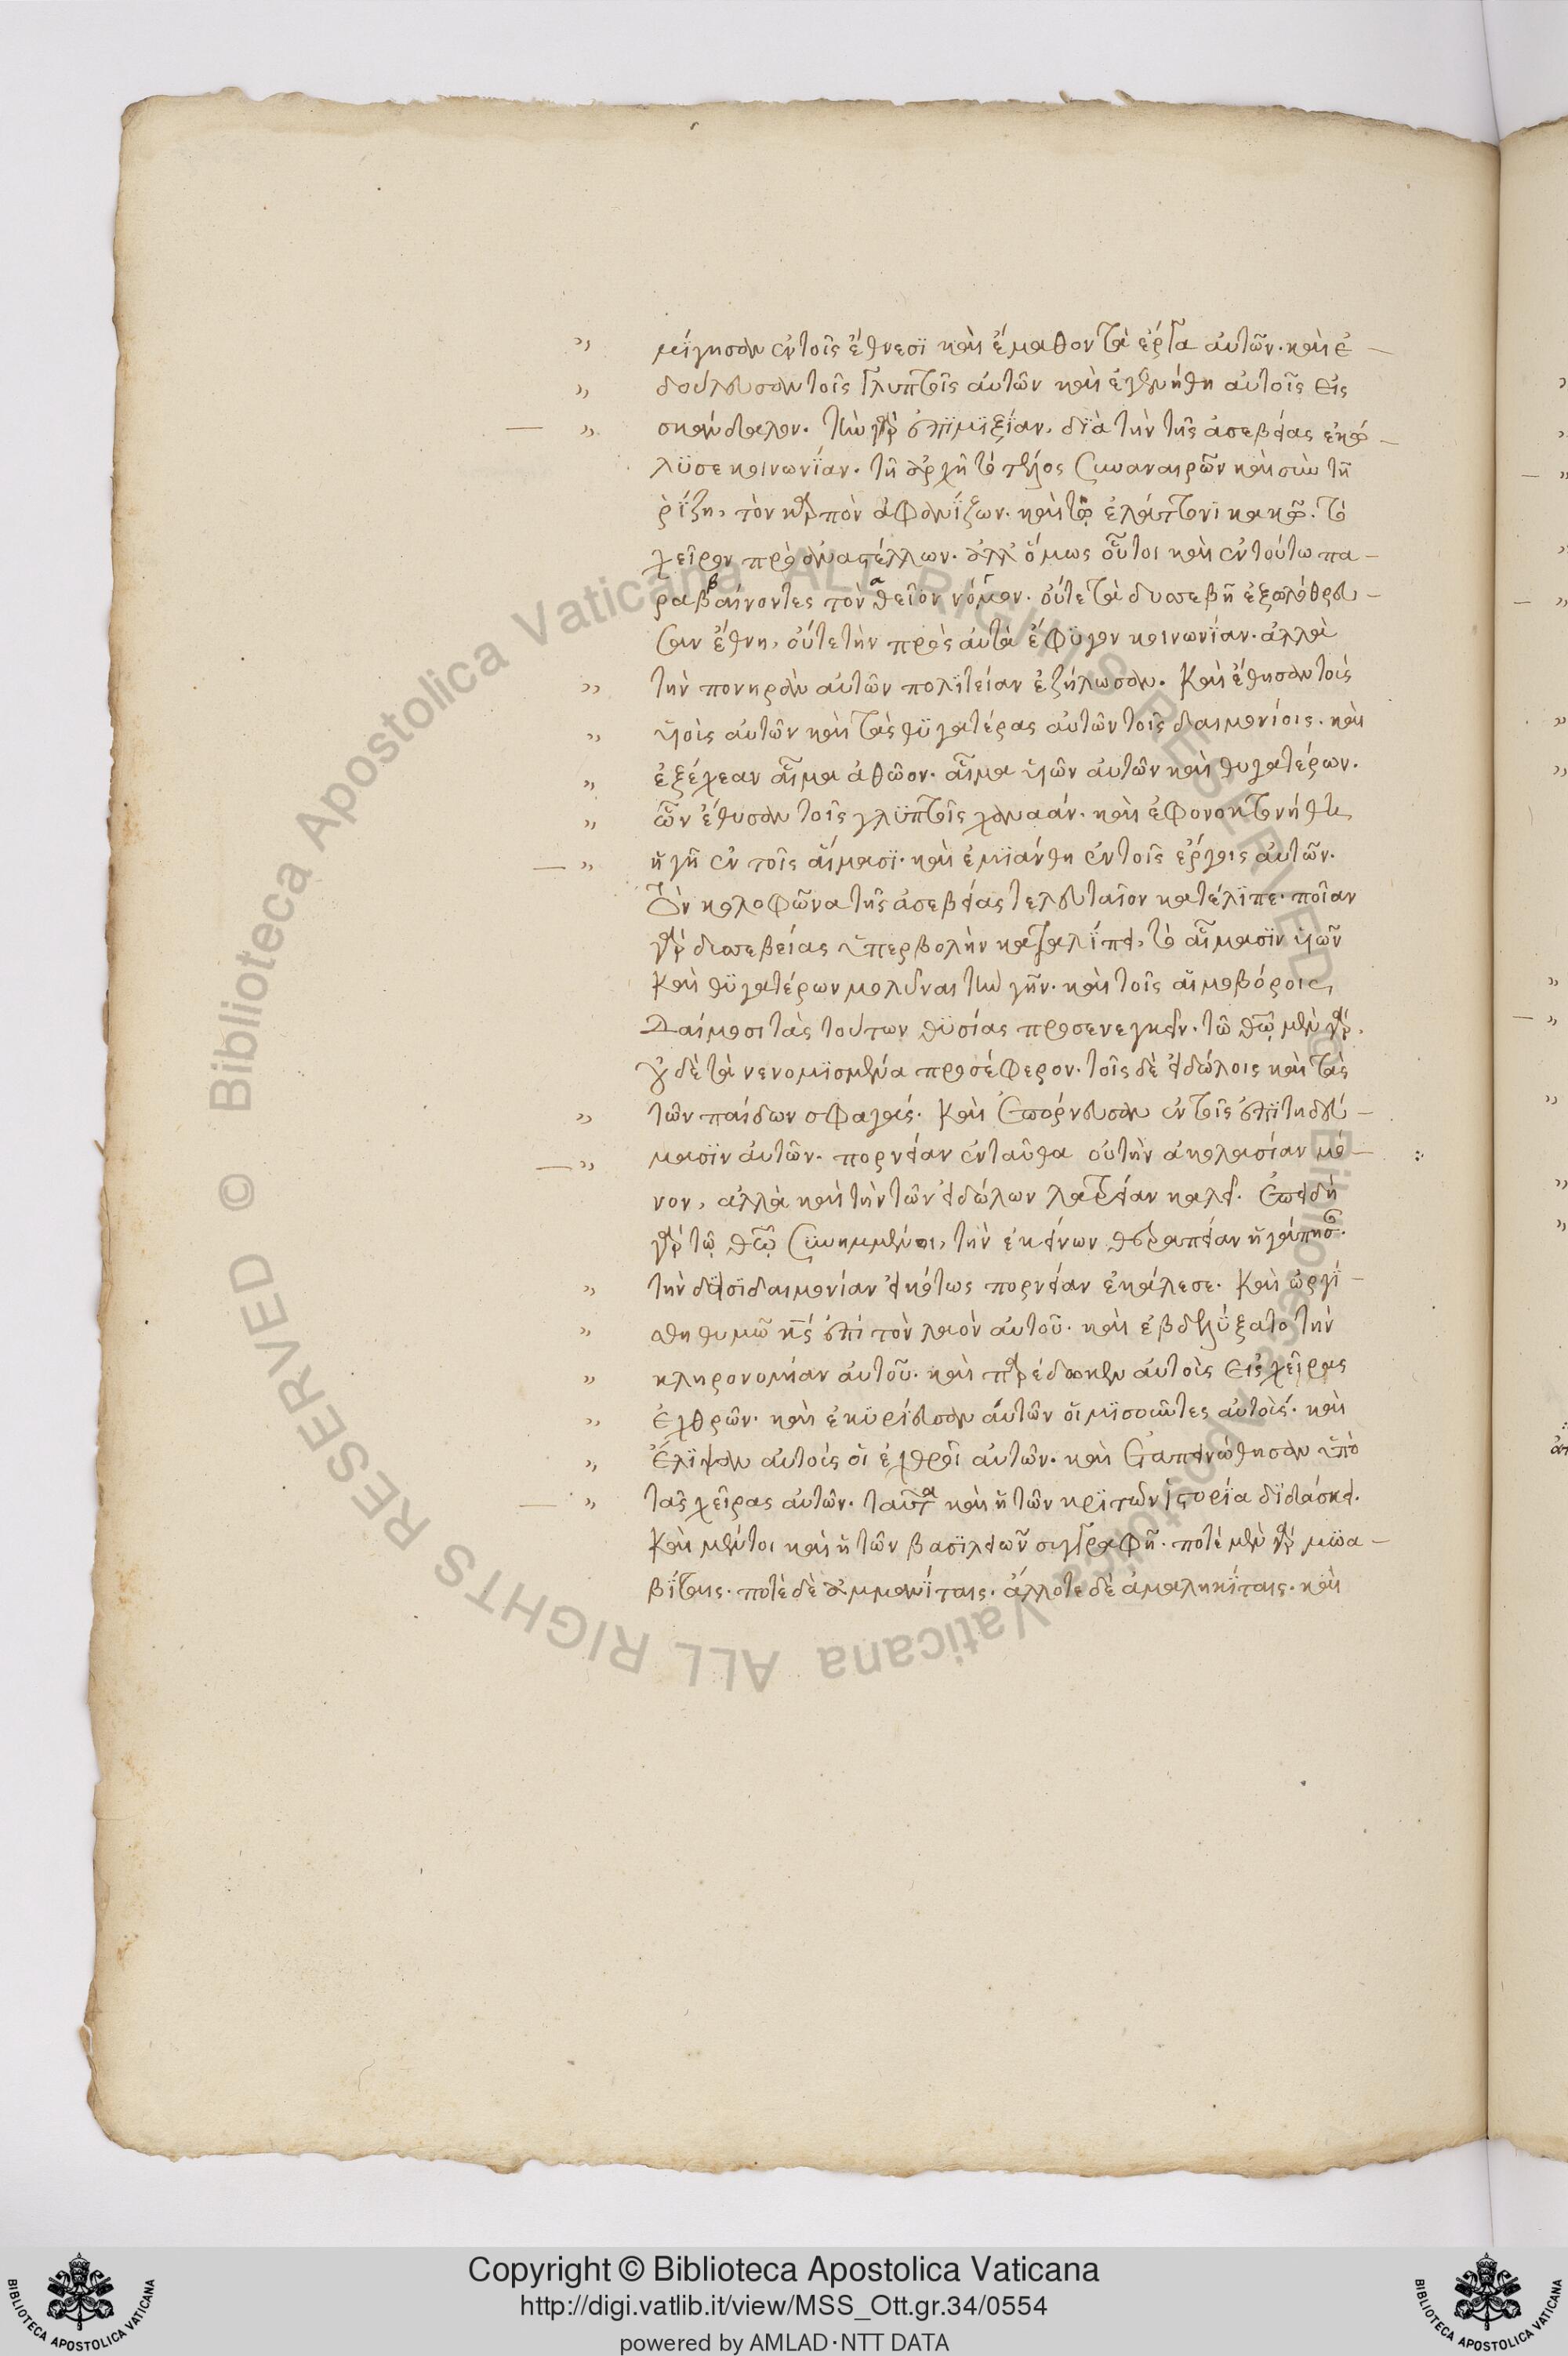 μίγησαν ἐν τοῖς ἔθνεσϊ καὶ ἔμαθον τὰ ἔργα αὐτῶν. καὶ ἐ-
δούλευσαν τοῖς γλυπτοῖς αὐτῶν καὶ ἐγενήθη αὐτοῖς εἰς
σκάνδαλον. τὴν γὰρ ἐπϊμϊξΐαν, δϊὰ τὴν τῆς ἀσεβείας ἐκώ-
λϋσε κοινωνΐαν. τῆ ἀρχῆ τὸ τέλος συναναιρῶν καὶ σὺν τῆ
ῥΐζη, τὸν καρπὸν ἀφανΐζων. καὶ τῷ ἐλάττονϊ κακῷ. τὸ
χεῖρον προαναστέλλων. ἀλλ' ὅμως οὗτοι καὶ ἐν τούτω πα-
ραβαίνοντες τὸν θεῖον νόμον. οὔτε τὰ δυσσεβῆ ἐξωλόθρευ-
σαν ἔθνη, οὔτε τὴν πρὸς αὐτὰ ἔφϋγον κοινωνΐαν. ἀλλὰ
τὴν πονηρὰν αὐτῶν πολϊτείαν ἐζήλωσαν. Καὶ ἔθησαν τοὺς
ϋἱοὺς αὐτῶν καὶ τὰς θϋγατέρας αὐτῶν τοῖς δαιμονίοις. καὶ
ἐξέχεαν αἷμα ἀθῶον. αἷμα υἱῶν αὐτῶν καὶ θυγατέρων.
ὧν ἔθυσαν τοῖς γλϋπτοῖς χαναάν. καὶ ἐφονοκτονήθη
ἡ γῆ ἐν τοῖς αἵμασϊ. καὶ ἐμϊάνθη ἐν τοῖς ἔργοις αὐτῶν.
Τὸν κολοφῶνα τῆς ἀσεβείας τελευταῖον κατέλϊπε. ποῖαν
γὰρ δυσσεβείας ὑπερβολὴν καταλΐπει, τὸ αἵμασϊν υἱῶν
Καὶ θϋγατέρων μολῦναι τὴν γῆν. καὶ τοῖς αἱμοβόροις,
Δαίμοσι τὰς τούτων θϋσίας προσενεγκεῖν. τῶ θεῷ μὲν γὰρ,
οὐδὲ τὰ νενομϊσμένα προσέφερον. τοῖς δὲ εἰδώλοις καὶ τὰς
τῶν παίδων σφαγάς. Καὶ ἐπόρνευσαν ἐν τοῖς ἐπϊτηδεύ-
μασϊν αὐτῶν. πορνείαν ἐνταῦθα οὐ τὴν ἀκολασίαν μό-
νον, ἀλλὰ καὶ τὴν τῶν εἰδώλων λατρείαν καλεῖ. ἐπειδὴ
γὰρ τῷ θεῷ συνημμένοι, τὴν ἐκείνων θεραπείαν ἠγάπησαν.
τὴν δεισϊδαιμονίαν εἰκότως πορνείαν ἐκάλεσε. Καὶ ὠργΐ-
σθη θυμῶ κς ἐπὶ τὸν λαὸν αὐτοῦ. καὶ ἐβδελΰξατο τὴν
κληρονομίαν αὐτοῦ. καὶ παρέδωκεν αὐτοὺς εἰς χεῖρας
ἐχθρῶν. καὶ ἐκϋρίευσαν αὐτῶν οἱ μϊσοῦντες αὐτούς. καὶ
ἔθλϊψαν αὐτοὺς οἱ ἐχθροὶ αὐτῶν. καὶ ἐταπεινώθησαν ὑπὸ
τὰς χεῖρας αὐτῶν. ταῦτα καὶ ἡ τῶν κρϊτῶν ἱστορία δϊδάσκει.
Καὶ μέντοι καὶ ἡ τῶν βασϊλειῶν συγγραφῆ. ποτὲ μὲν γὰρ μωα-
βΐταις. ποτὲ δὲ ἀμμανΐταις. ἄλλοτε δὲ ἀμαληκΐταις. καὶ
Copyright © Biblioteca Apostolica Vaticana
http://digi.vatlib.it/view/MSS_Ott.gr.34/0554
powered by AMLAD·NTT DATA